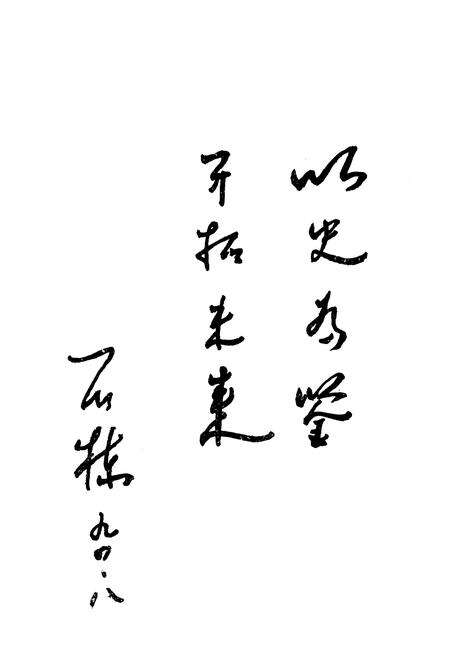 以史为鉴
开拓未来
石栋
九〇·八